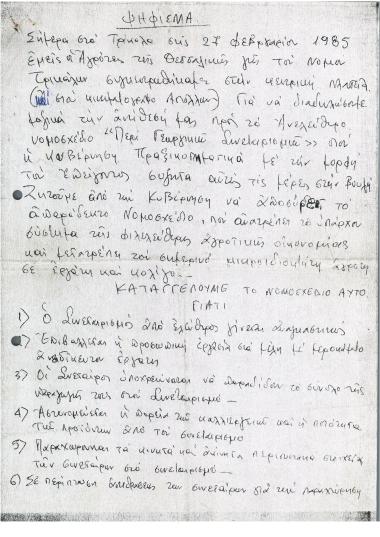 ΨΗΦΙΣΜΑ
Σήμερα στα Τρίκαλα στις 27 Φεβρουαρίου 1985
Εμείς οι Αγρότες της Θεσσαλικής γης του Νομού
Τρικάλων συγκεντρωθήκαμε στην κεντρική πλατεία
(και στο κινηματογράφο Απόλλων) Για να διαδηλώσουμε
μαζικά την αντίθεσή μας προς το Ανελεύθερο
νομοσχέδιο "Περί Γεωργικών Συνεταιρισμών" που
η Κυβέρνηση Πραξικοπηματικά με την μορφή
του Επείγοντος συζητά αυτές τις μέρες στην Βουλή
Ζητούμε από την Κυβέρνηση να αποσύρει το
απαράδεκτο Νομοσχέδιο, που ανατρέπει το υπάρχον
σύστημα της φιλελεύθερης αγροτικής οικονομίας
και μετατρέπει τον σημερινό μικροιδιοκτήτη αγρότη
σε εργάτη και κολίγο.
ΚΑΤΑΓΓΕΛΟΥΜΕ ΤΟ ΝΟΜΟΣΧΕΔΙΟ ΑΥΤΟ
ΓΙΑΤΙ
1) Ο Συνεταιρισμός από ελεύθερος γίνεται αναγκαστικός
2) Επιβάλλεται η προσωπική εργασία στα μέλη με μεροκάματο
ανειδίκευτου εργάτη
3) Οι Συνεταίροι υποχρεώνονται να παραδίδουν το σύνολο της
παραγωγής τους στο Συνεταιρισμό
4) Αστυνομεύεται η πορεία της καλλιέργειας και η ποιότητα
των προϊόντων από τον συνεταιρισμό
5) Παραχωρούνται τα κινητά και ακίνητα περιουσιακά στοιχεία
των συνεταίρων στο συνεταιρισμό
6) Σε περίπτωση των συνεταίρων για την παραχώρηση